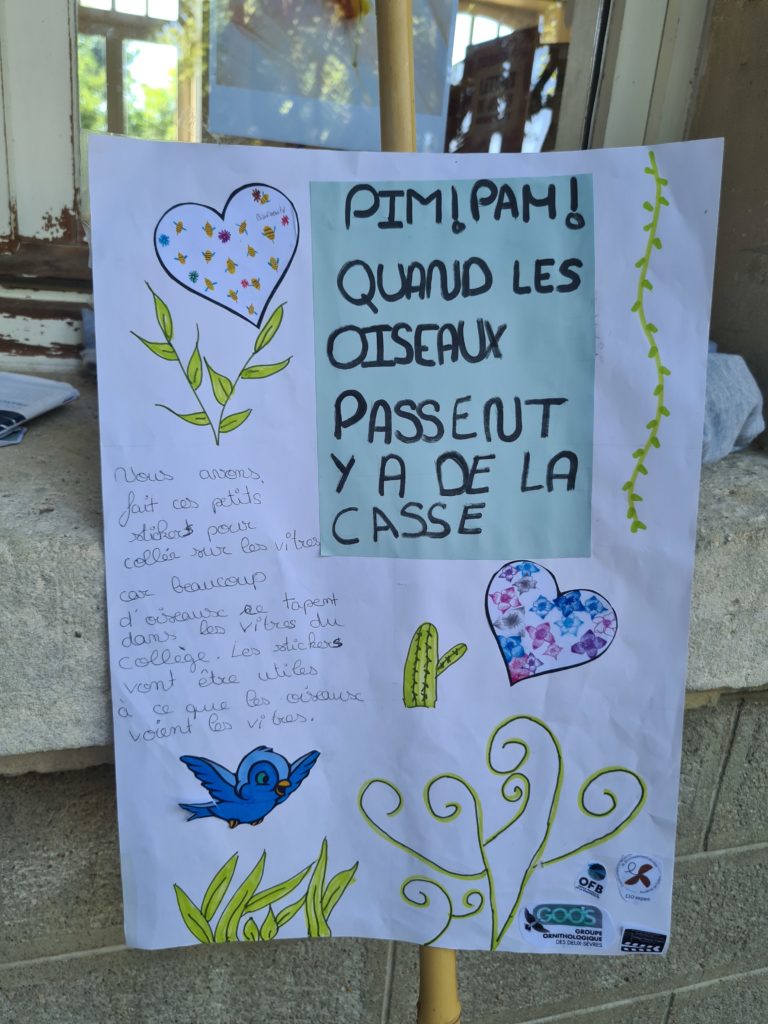 Biodiversité
PIM! PAM!
QUAND LES
OISEAUX
PASSENT
Y A DE LA
CASSE
Nous avons
fait ces petits
stickers pour
collée sur les vitres
car beaucoup
d'oiseaux se tapent
dans les vitres du
collège. Les stickers
vont être utiles
à ce que les oiseaux
voient les vitres.
OFB
GODS
GROUPE
ORNITHOLOGIQUE
DES DEUX-SÈVRES